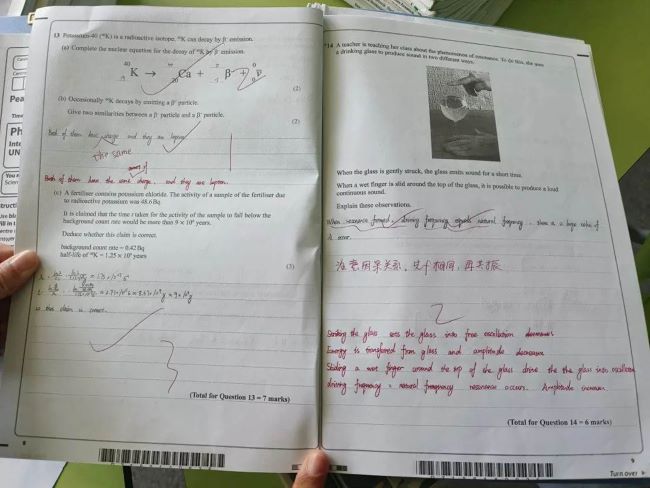 13 Potassium-40 (⁴⁰K) is a radioactive isotope. ⁴⁰K can decay by β⁻ emission.
(a) Complete the nuclear equation for the decay of ⁴⁰K by β⁻ emission.
K → Ca + β⁻ +
(2)
(b) Occasionally ⁴⁰K decays by emitting a β⁺ particle.
Give two similarities between a β⁻ particle and a β⁺ particle.
(2)
Both of them have charge and they are lepton.
the same
Both of them have the same charge. and they are lepton.
(c) A fertiliser contains potassium chloride. The activity of a sample of the fertiliser due
to radioactive potassium was 48.6 Bq
It is claimed that the time t taken for the activity of the sample to fall below the
background count rate would be more than 9 × 10⁹ years.
Deduce whether this claim is correct.
background count rate = 0.42 Bq
half-life of ⁴⁰K = 1.25 × 10⁹ years
(3)
so this claim is correct.
(Total for Question 13 = 7 marks)
8
*14 A teacher is teaching her class about the phenomenon of resonance. To do this, she uses
a drinking glass to produce sound in two different ways.
When the glass is gently struck, the glass emits sound for a short time.
When a wet finger is slid around the top of the glass, it is possible to produce a loud
continuous sound.
Explain these observations.
When resonance formed, driving frequency equals natural frequency. there is a large value of
注意因果关系，先f相同，再共振
2
Striking the glass sets the glass into free oscillation
Energy is transferred from glass and amplitude decrease
Sliding a wet finger around the top of the glass drive the the glass into oscillation
driving frequency = natural frequency resonance occurs. Amplitude increase.
(Total for Question 14 = 6 marks)
9
Turn over